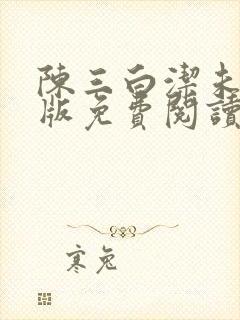 陳三白潔未
版免費閱讀
寒兔